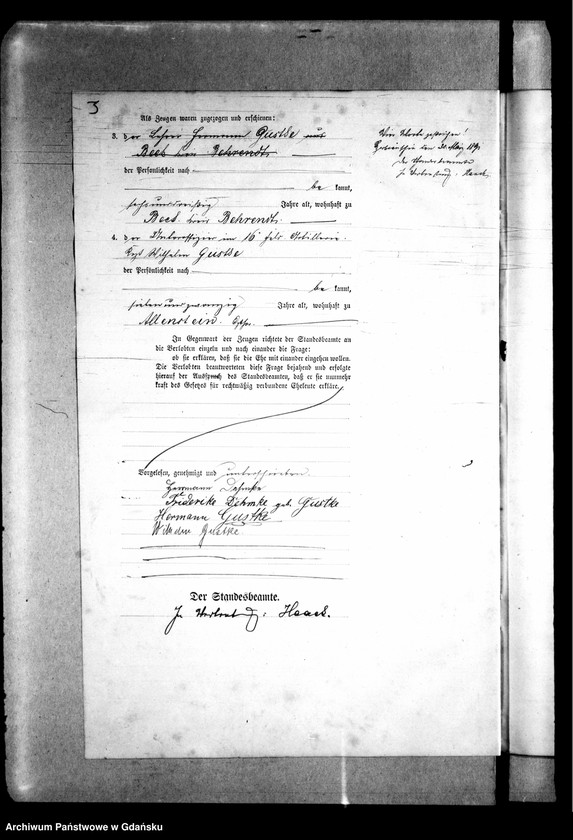 3
Als Zeugen waren zugezogen und erschienen:
3. der Lehrer Hermann Gustke aus
Beek Krs Behrendt
der Persönlichkeit nach
be kannt,
sechsunddreißig Jahre alt, wohnhaft zu
Beek Kreis Behrendt.
4. der Unteroffizier im 16 Feld Artillerie.
Regt Wilhelm Gustke
der Persönlichkeit nach
be kannt,
siebenundzwanzig Jahre alt, wohnhaft zu
Allenstein. Ostpr.
In Gegenwart der Zeugen richtete der Standesbeamte an
die Verlobten einzeln und nach einander die Frage:
ob sie erklären, daß sie die Ehe mit einander eingehen wollen.
Die Verlobten beantworteten diese Frage bejahend und erfolgte
hierauf der Ausspruch des Standesbeamten, daß er sie nunmehr
kraft des Gesetzes für rechtmäßig verbundene Eheleute erkläre.
Vorgelesen, genehmigt und unterschrieben.
Herrmann Dehmke
Friederike Dehmke geb. Gustke
Hermann Gustke
Wilhelm Gustke
Der Standesbeamte.
In Vertretung: Haack.
Vier Worte gestrichen!
den 31. März
Der Standesbeamte
In Vertretung. Haack
Archiwum Państwowe w Gdańsku